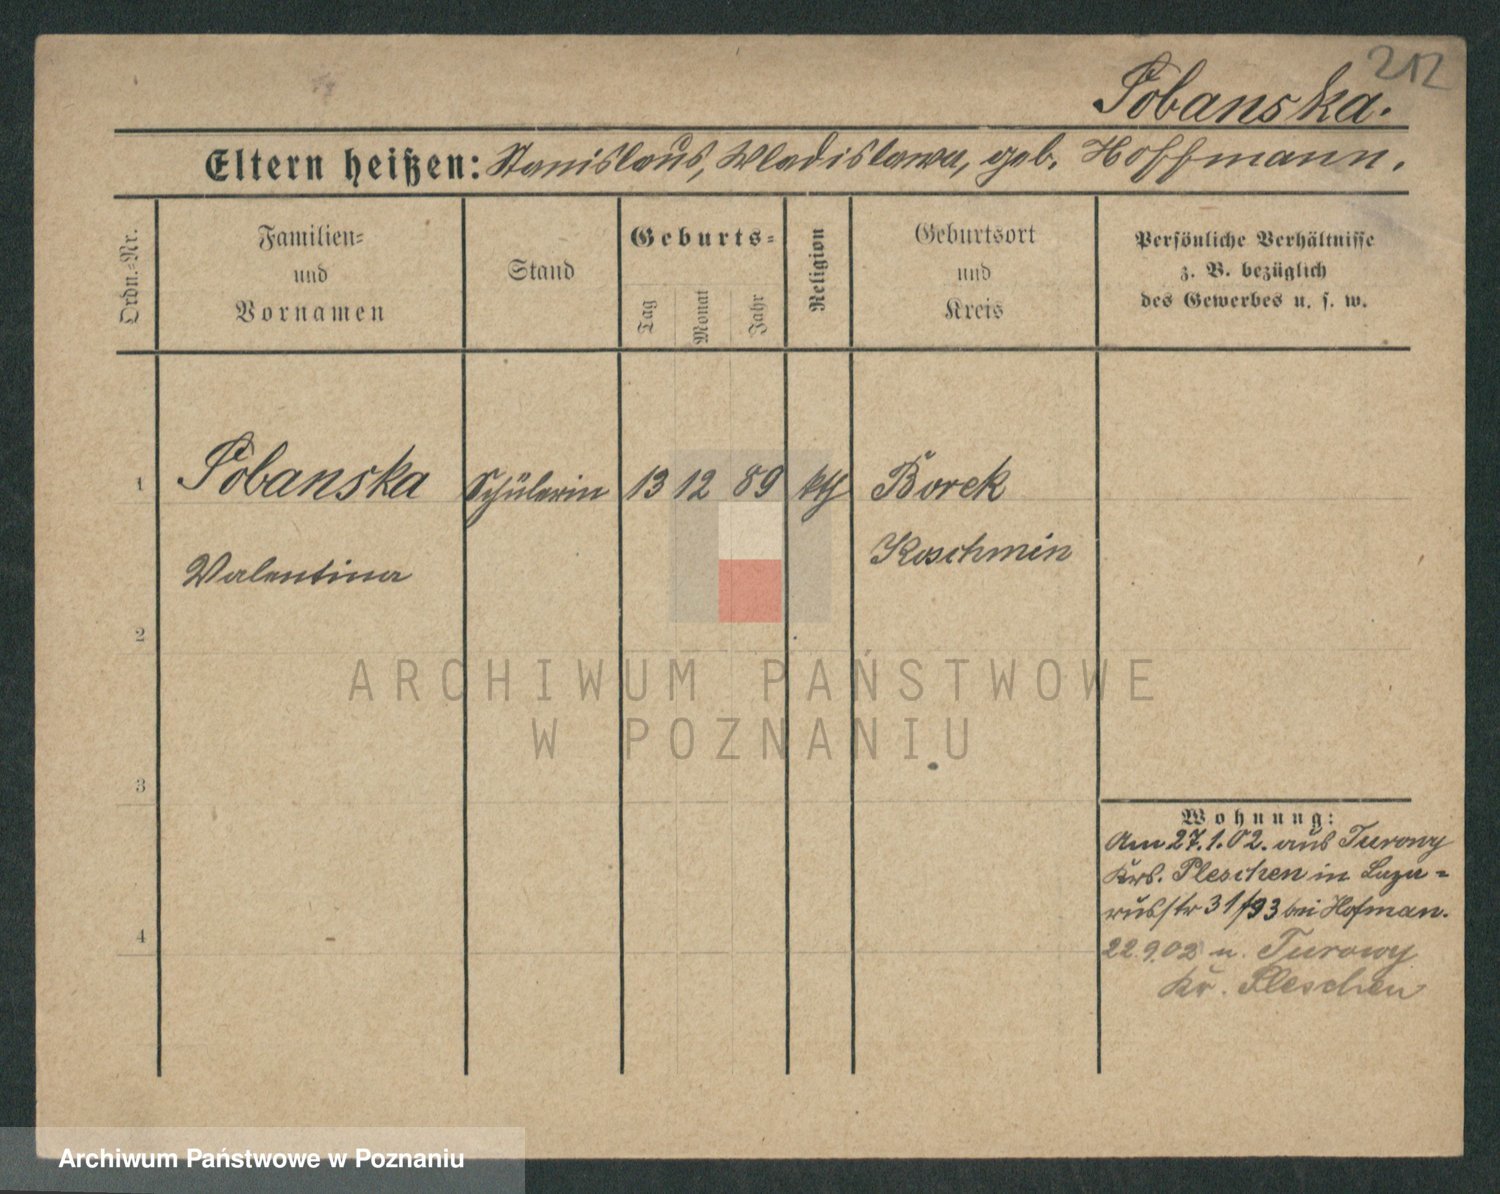 212
Sobanska.
Eltern heißen: Stanislaus, Wladislawa, geb. Hoffmann.
Ordn.=Nr.
Familien=
und
Vornamen
Stand
Geburts=
Tag
Monat
Jahr
Religion
Geburtsort
und
Kreis
Persönliche Verhältnisse
z. B. bezüglich
des Gewerbes u. s. w.
1 Sobanska Schülerin 13 12 89 kth Borek
Valentina Koschmin
2
3
4
Wohnung:
Am 27.1.02. aus Turowy
Krs. Pleschen in Laza=
russtr 31/33 bei Hofman.
22.9.02 n. Turowy
Kr. Pleschen
ARCHIWUM PAŃSTWOWE
W POZNANIU
Archiwum Państwowe w Poznaniu